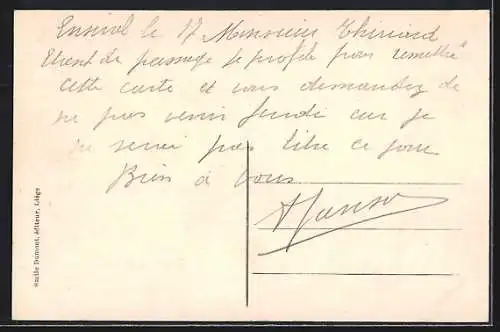 Ensival le 17 Monsieur Thiriard
Etant de passage je profite pour remettre
cette carte et vous demandez de
ne pas venir Jeudi car je
ne serai pas libre ce jour
Bien à vous
Emile Dumont, éditeur, Liége